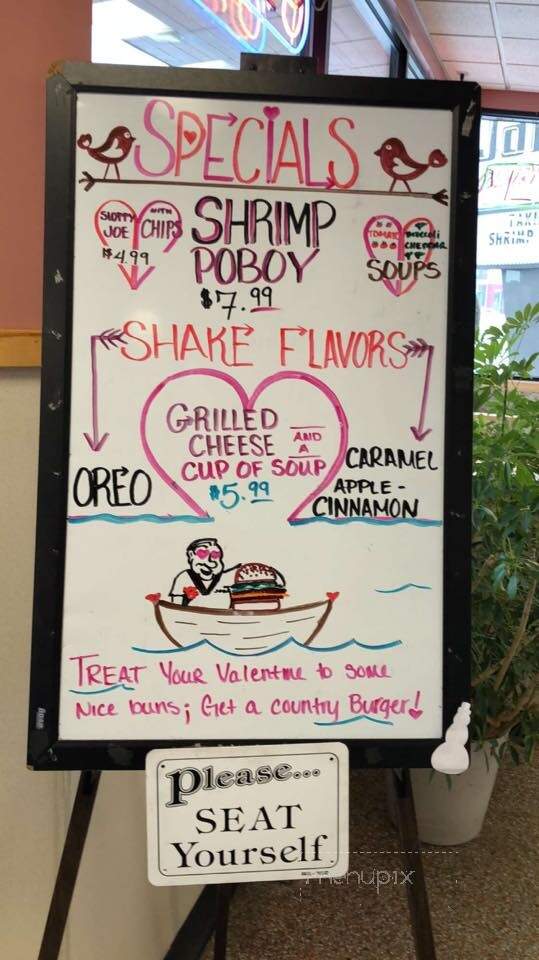 SPECIALS
SLOPPY JOE
WITH CHIPS
$4.99
SHRIMP
POBOY
$7.99
TOMATO
Broccoli
CHEDDAR
SOUPS
SHAKE FLAVORS
GRILLED
CHEESE AND A
CUP OF SOUP
$5.99
OREO
CARAMEL
APPLE-
CINNAMON
TREAT Your Valentine to some
Nice buns; Get a country Burger!
Please...
SEAT
Yourself
SHRIMP
menupix